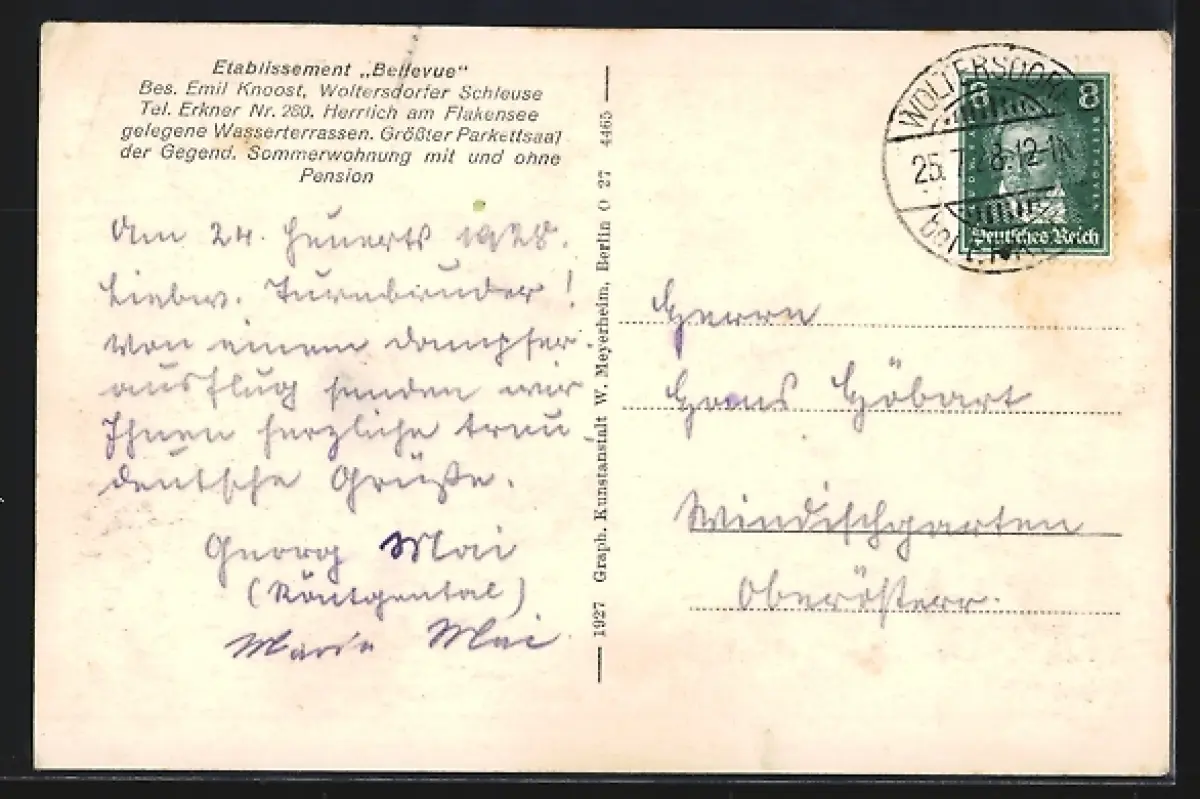 Etablissement „Bellevue"
Bes. Emil Knoost, Woltersdorfer Schleuse
Tel. Erkner Nr. 280. Herrlich am Flakensee
gelegene Wasserterrassen. Größter Parkettsaal
der Gegend. Sommerwohnung mit und ohne
Pension
Am 24. Heuerts 1928.
Liebw. Turnbruder!
Von einem Dampfer-
ausflug senden wir
Ihnen herzliche treu-
deutsche Grüße.
Georg Mai
(Röntgental)
Maria Mai
1927 Graph. Kunstanstalt W. Meyerheim, Berlin O 27 4465
WOLTERSDORF
25.7.28.12-1N
8 8
Deutsches Reich
Herrn
Hans Höbart
Windischgarten
Oberösterr.